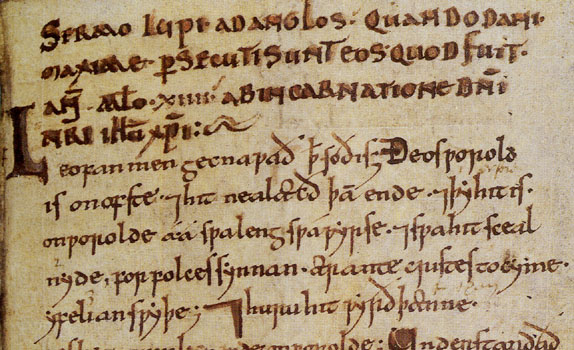 SERMO LUPI AD ANGLOS· QUANDO DANI·
MAXIME· ꝑSECUTI SUNT EOS· QUOD FUIT·
AN̄· M̄LO· XIIII· AB INCARNATIONE DN̄I
NR̄I IH̄U XP̄I:
Leofan men gecnaƿað ꝥ soð is; Ðeos ƿorold
is on ofste· ⁊ hit nealæcð þā ende· ⁊ þy hit is·
on ƿorolde aa sƿa leng sƿa ƿyrse· ⁊ sƿa hit sceal
nyde, for folces synnan· ær antecristes tocyme·
yfelian sƿyþe; ⁊ huru hit ƿyrð þænne
ƿorolde· Understandað